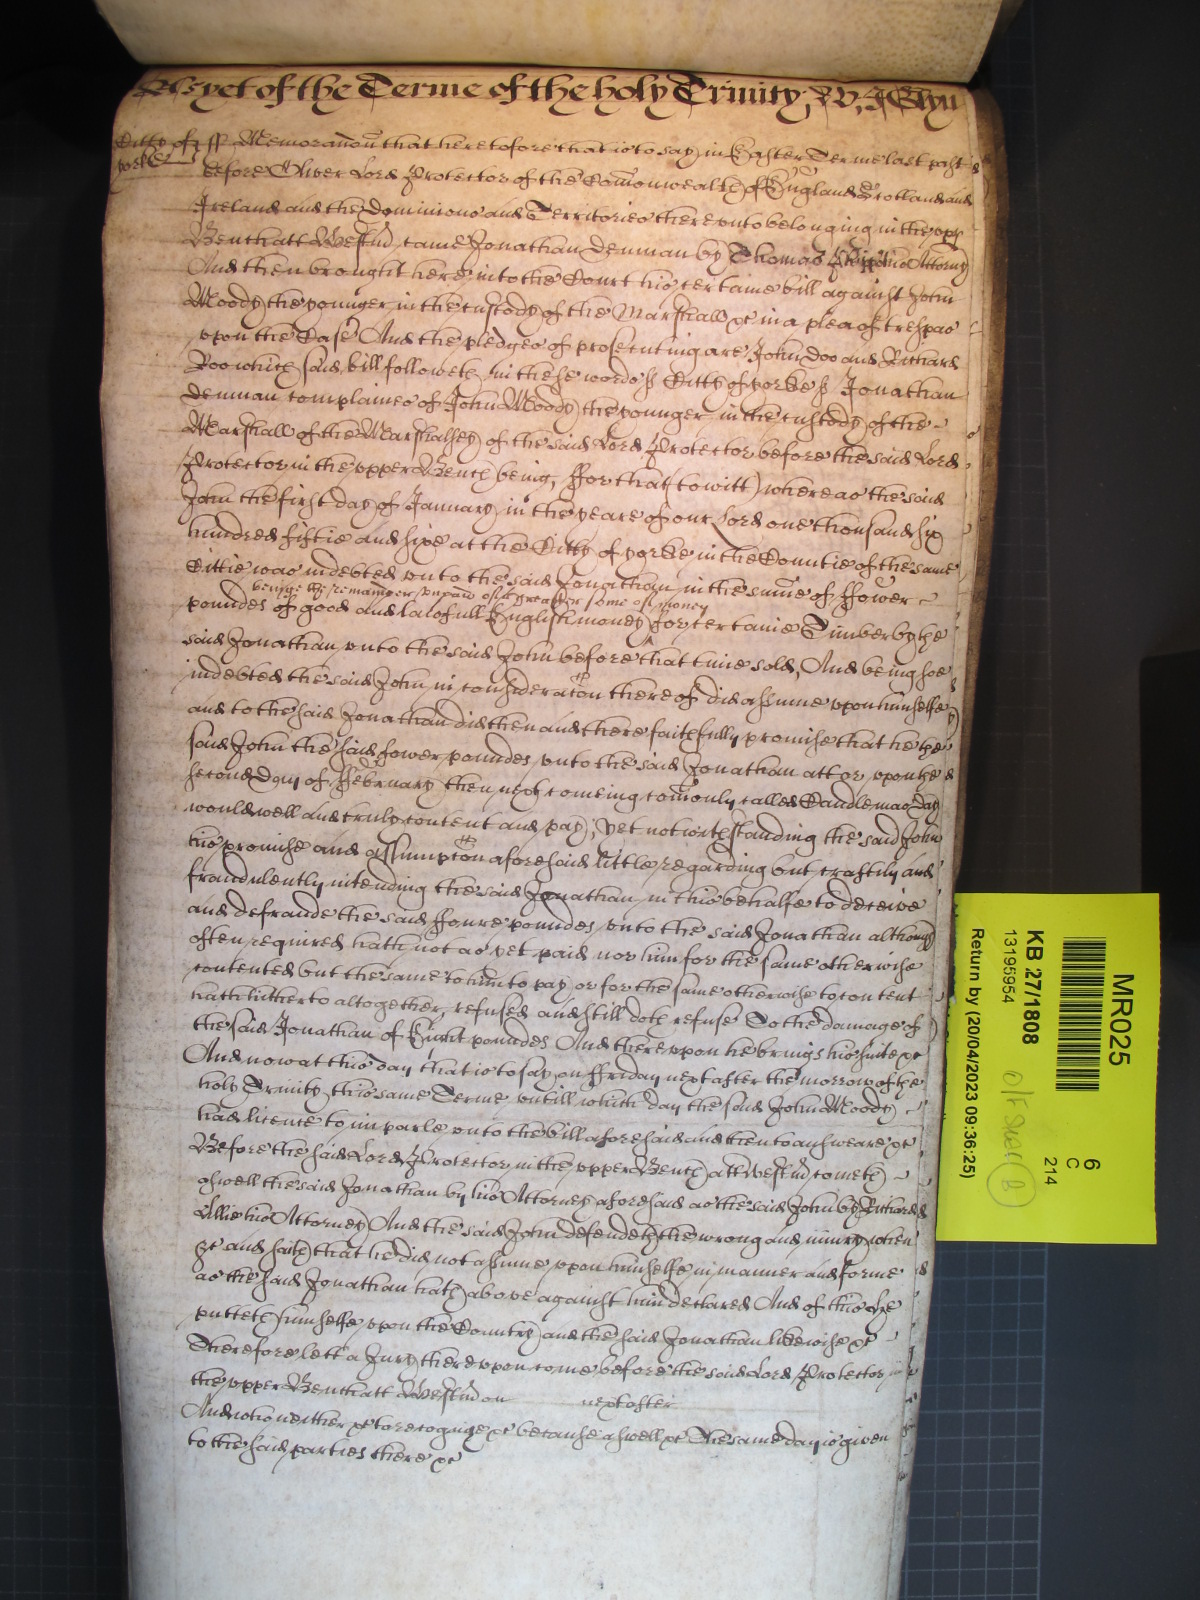 As yet of the Terme of the holy Trinity, W, J Glyn
Citty of
yorke
ss Memorandũ that heretofore that is to say in Easter Terme last past
before Oliver Lord Protector of the Com̃onwealth of England Scotland and
Ireland and the Dominions and Territories thereunto belonging in the upp
Bench att Westm̃ came Jonathan Denman by Thomas his Attorny
And then brought here into the Court his certaine bill against John
Moody the younger in the custody of the Marshall &c in a plea of trespas
upon the Case And the pledges of prosecuting are John Doo and Richard
Roo which said bill followeth in these words ss Citty of yorke ss Jonathan
Denman complaines of John Moody the younger in the custody of the
Marshall of the Marshalsey of the said Lord Protector before the said Lord
Protector in the upper Bench being, ffor that (to witt) whereas the said
John the first day of January in the yeare of our Lord one thousand six
hundred fiftie and sixe at the Citty of yorke in the Countie of the same
Cittie was indebted unto the said Jonathan in the sum̃e of ffower
beinge the remainder unpaid of a greater some of money
poundes of good and lawfull English money for certaine Timber by he
said Jonathan unto the said John before that time sold, And being soe
indebted the said John in consideratõn thereof did assume upon himselfe
and to the said Jonathan did then and there faithfully promise that he the
said John the said fower poundes unto the said Jonathan att or upon the
second Day of ffebruary then next comeing com̃only called Candlemas Day
would well and truly content and pay, yet notwithstanding the said John
his promise and assumptõn aforesaid little regarding but craftily and
fraudulently intending the said Jonathan in this behalfe to deceive
and defraude the said ffoure poundes unto the said Jonathan although
often required hath not as yet paid nor him for the same otherwise
contented but the same to him to pay or for the same otherwise to content
hath hitherto altogether refused and still doth refuse To the damage of
the said Jonathan of Eight poundes And thereupon he brings his suite &c
And now at this day that is to say on ffriday next after the morrow of the
holy Trinity this same Terme untill which day the said John Moody
had licence to imparle unto the bill aforesaid and then to answeare &c
Before the said Lord Protector in the upper Bench att Westm̃ cometh
aswell the said Jonathan by his Attorney aforesaid as the said John by Richard
Ellis his Attorney And the said John defendeth the wrong and iniury when
&c and saith that he did not assume upon himselfe in manner and forme
as the said Jonathan hath above against him declared And of this he
putteth himselfe upon the Country and the said Jonathan likewise &c
Therefore lett a Jury thereupon come before the said Lord Protector in
the upper Bench att Westm̃ on next after
And who neither &c to recognize &c because aswell &c The same day is given
to the said parties there &c
MR025
KB 27/1808
13195954
Return by (20/04/2023 09:36:25)
6
C
214